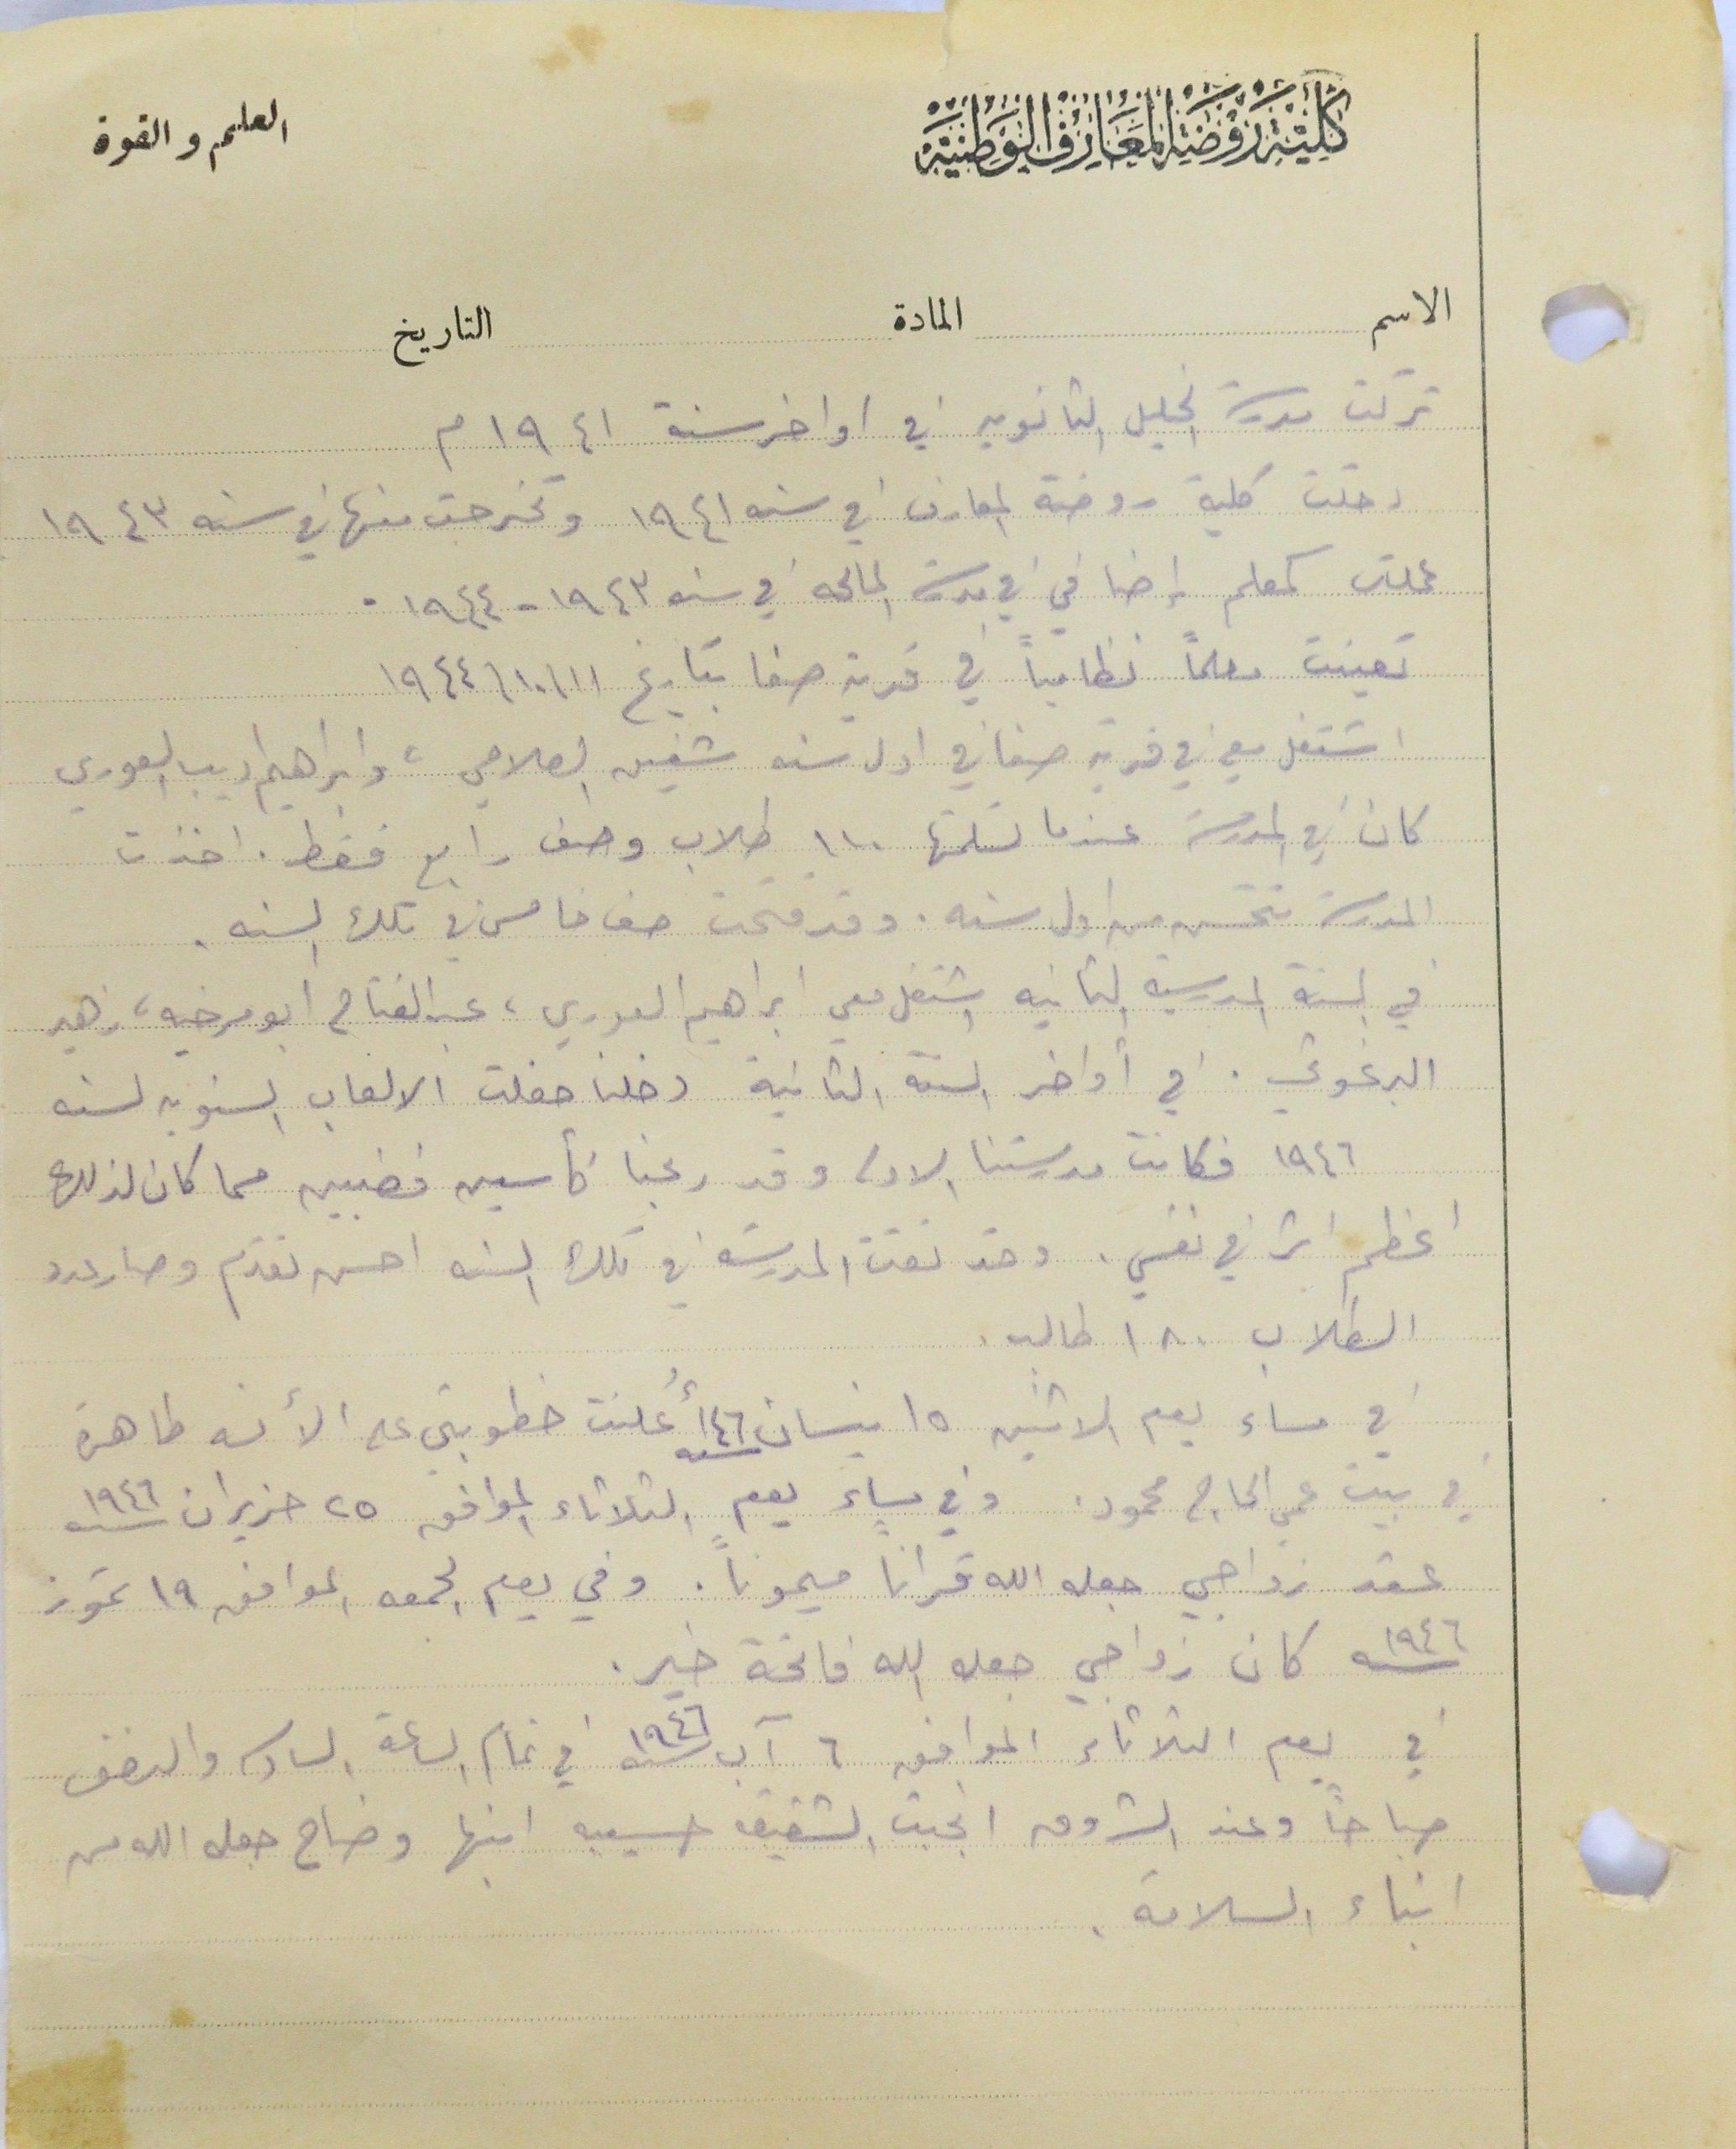 كلية روضة المعارف الوطنية
العلم والقوة
الاسم المادة التاريخ
تركت مدرسة الخليل الثانويه في اواخر سنة ١٩٤١ م
دخلت كلية روضة المعارف في سنه ١٩٤١ وتخرجت منها في سنه ١٩٤٣
عملت كمعلم إضافي في مدرسة المالحه في سنه ١٩٤٣ - ١٩٤٤ .
تعينت معلماً نظامياً في قرية صفا بتاريخ ١١/١٠/١٩٤٤
اشتغل معي في قرية صفا في اول سنه شفيق الصلاحي، وابراهيم اديب العوري
كان في المدرسة عندما تسلمتها ١١٠ طلاب وصف رابع فقط. اخذت
المدرسة تتحسن من اول سنه. وقد فتحت صف خامس في تلك السنه.
في السنة المدرسية الثانيه اشتغل معي ابراهيم العوري، عبد الفتاح ابو مرخيه، زهير
البرغوثي. في أواخر السنة الثانية دخلنا حفلت الالعاب السنويه لسنه
١٩٤٦ فكانت مدرستنا الاولى وقد ربحنا كأسين فضيين مما كان لذلك
اعظم اثر في نفسي. وقد تقدمت المدرسة في تلك السنه احسن تقدم وصار عدد
الطلاب ١٨٠ طالب.
في مساء يوم الاثنين ١٥ نيسان سنه ١٤٦ أُعلنت خطوبتي على الأنسه طاهرة
في بيت عمي الحاج محمود. وفي مساء يوم الثلاثاء الموافق ٢٥ حزيران سنه ١٩٤٦
عقد زواجي جعله الله قراناً ميموناً. وفي يوم الجمعه الموافق ١٩ تموز
سنه ١٩٤٦ كان زواجي جعله الله فاتحة خير.
في يوم الثلاثاء الموافق ٦ آب سنه ١٩٤٦ في تمام الساعة السادسه والنصف
صباحاً وعند الشروق انجبت الشقيقه حسيبه ابنها وضاح جعله الله من
ابناء السلامة.